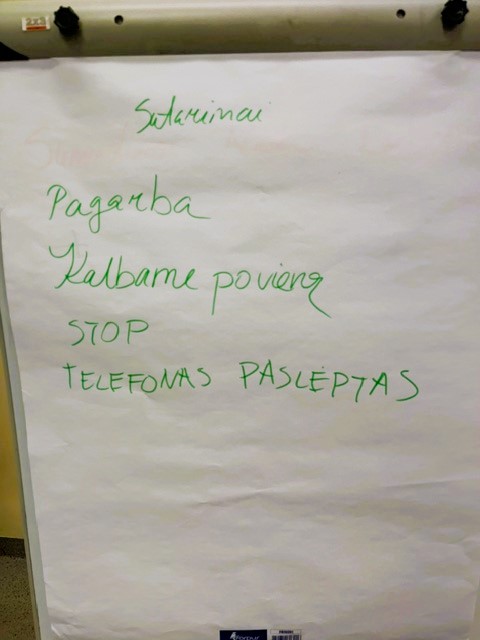 2x3
Sutarimai
Pagarba
Kalbame po vieną
STOP
TELEFONAS PASLĖPTAS